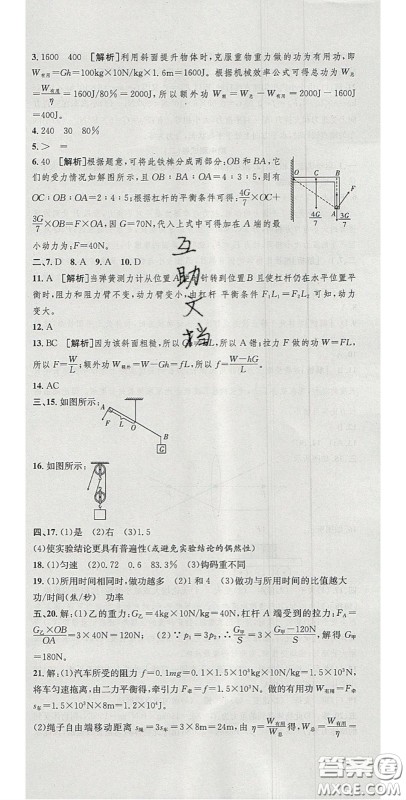 3. 1600  400  [解析]利用斜面提升物体时，克服重物重力做的功为有用功，即
W有用=Gh=100kg×10N/kg×1.6m=1600J。根据机械效率公式可得总功为W总=
W有用/η=1600J/80%=2000J，所以，额外功W额外=W总-W有用=2000J-1600J=
400J。
4. 240  30  80%
5. >  =
6. 40  [解析]根据题意，可将此铁棒分成两部分，OB和BA，它
们的受力情况如解图所示，且由题给条件可得，所以有
OC：OB：OA=4：3：5，根据杠杆的平衡条件可得：4G/7×OC+
3G/7×OB=F×OA，因G=70N，代入上式中可得加在A端的最
小动力为：F=40N。
O C B
4G/7 A 3G/7
二、7. D  8. A  9. A  10. D
11. A  [解析]当弹簧测力计从位置A逐渐转到位置B且使杠杆仍在水平位置平
衡时，阻力和阻力臂不变，动力臂变小，由杠杆 平衡条件F1L1=F2L2可知，动力
变大。
12. A
13. BC  [解析]因为该斜面粗糙，所以W=FL，所以A错；拉力F做的功W=FL，
所以F=W/L；额外功W额外=W-Gh=fL，所以f=(W-hG)/L。
14. AC
三、15. 如图所示：
A O F L B G
16. 如图所示：
四、17. (1)是  (2)右  (3)1.5
(4)使实验结论更具有普遍性(或避免实验结论的偶然性)
18. (1)匀速  (2)0.72  0.6  83.3%  (3)钩码重不同
19. (1)所用时间相同时，做功越多  (2)1  4  (3)做功与所用时间的比值越大
功/时间(焦/秒)  功率
五、20. 解：(1)乙的重力：G乙=4kg×10N/kg=40N，杠杆A端受到的拉力：FA=
G乙×OB/OA=3×40N=120N；  (2)∵p1=3p2，∴G甲/S=3×(G甲-120N)/S，解得G甲
=180N。
21. 解：(1)汽车所受的阻力f=0.1mg=0.1×1.5×10³kg×10N/kg=1.5×10³N，
将车匀速拖离，由二力平衡得，牵引力F=f=1.5×10³N。做的有用功W有用=Fs=
1.5×10³N×8m=1.2×10⁴J
(2)绳子自由端移动距离s绳=3s=3×8m=24m，由η=W有用/W总得，W总=W有用/η=
互助文档
答案圈
MXQE.COM